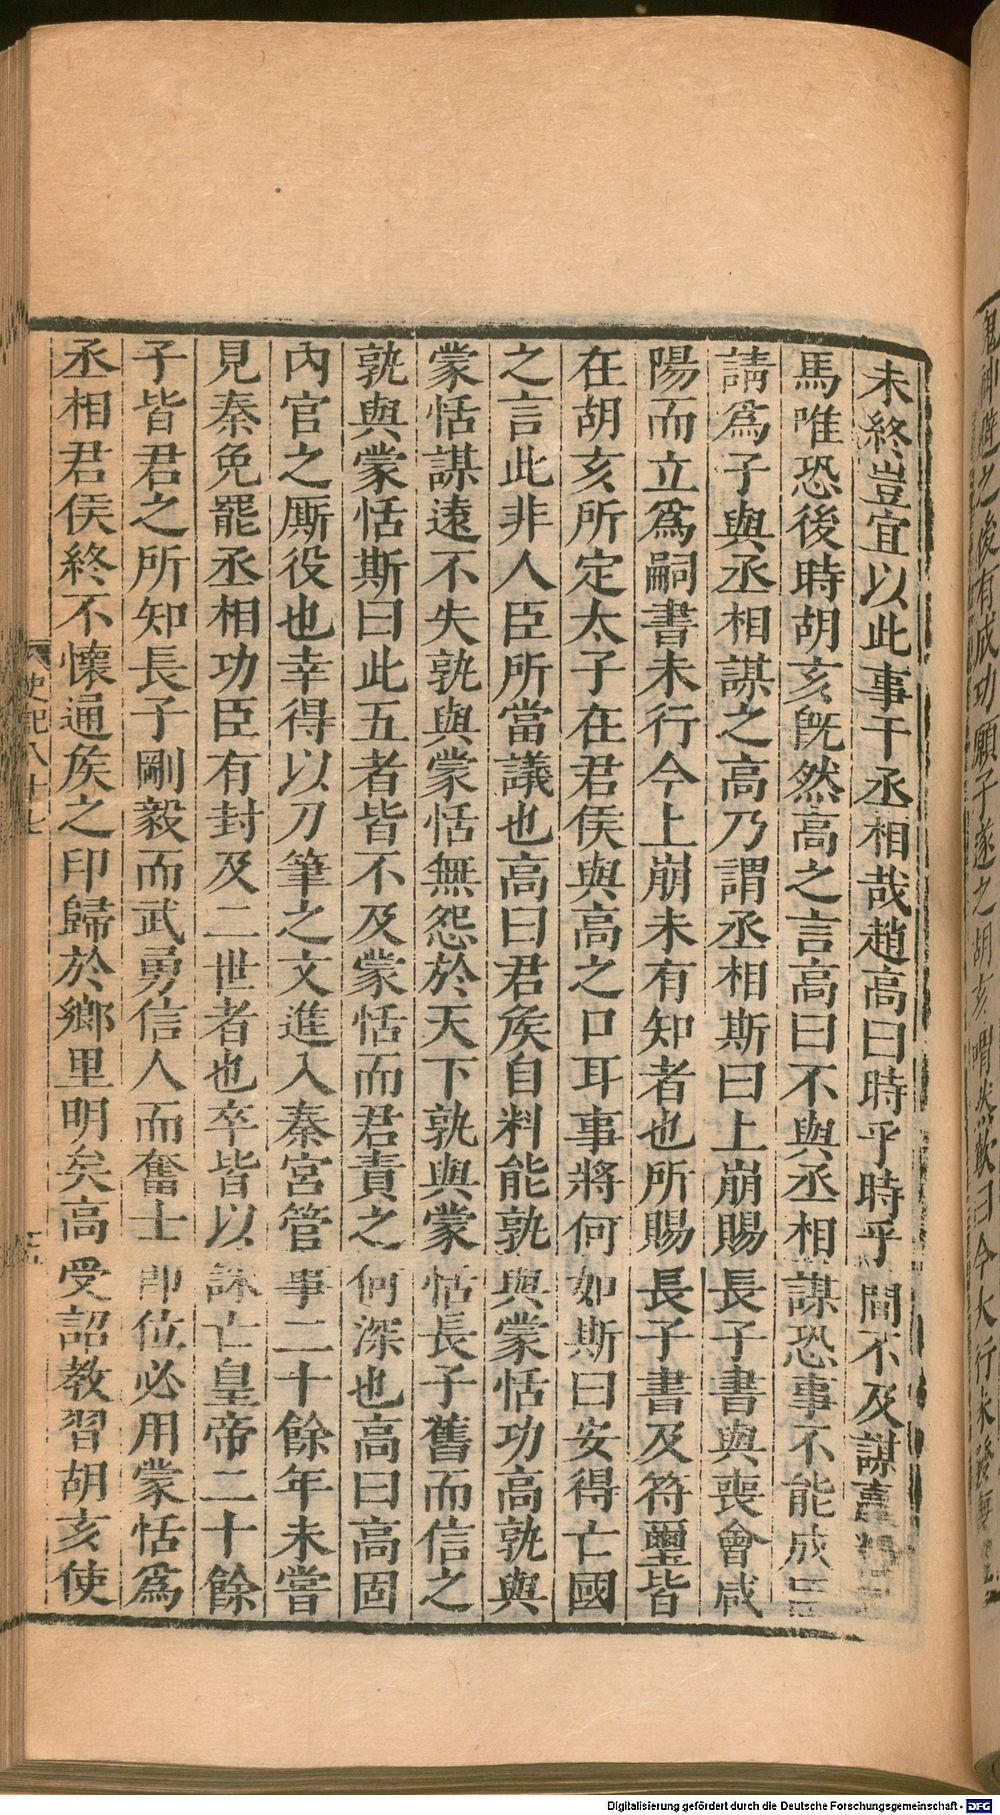 未終豈宜以此事干丞相哉趙高曰時乎時乎間不及謀贏糧
馬唯恐後時胡亥旣然高之言高曰不與丞相謀恐事不能成臣
請爲子與丞相謀之高乃謂丞相斯曰上崩賜長子書與喪會咸
陽而立爲嗣書未行今上崩未有知者也所賜長子書及符璽皆
在胡亥所定太子在君侯與高之口耳事將何如斯曰安得亡國
之言此非人臣所當議也高曰君矦自料能孰與蒙恬功高孰與
蒙恬謀遠不失孰與蒙恬無怨於天下孰與蒙恬長子舊而信之
孰與蒙恬斯曰此五者皆不及蒙恬而君責之何深也高曰高固
內官之厮役也幸得以刀筆之文進入秦宮管事二十餘年未嘗
見秦免罷丞相功臣有封及二世者也卒皆以誅亡皇帝二十餘
子皆君之所知長子剛毅而武勇信人而奮士卽位必用蒙恬爲
丞相君侯終不懷通矦之印歸於鄉里明矣高受詔教習胡亥使
史記八十七
鬼神避之後有成功願子遂之胡亥喟然歎曰今大行未發喪禮
Digitalisierung gefördert durch die Deutsche Forschungsgemeinschaft - DFG